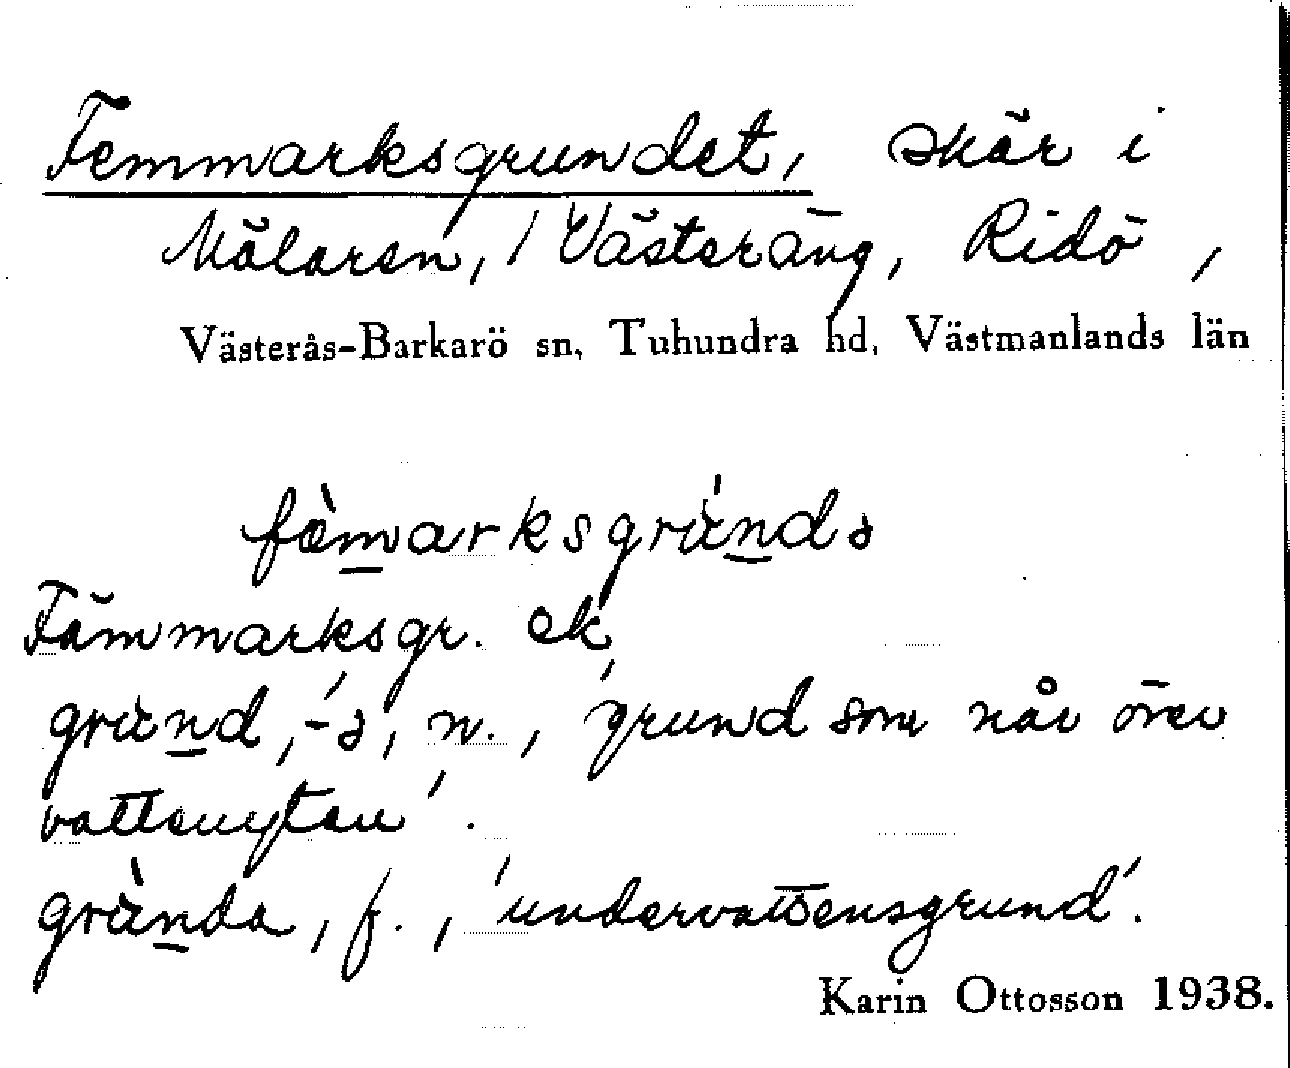 Femmarksgrundet, skär i
Mälaren, / Västeräng, Ridö,
Västerås-Barkarö sn, Tuhundra hd, Västmanlands län
fæ̀marksgrùnds
Fämmarksgr. ek
grund, -ə, n., 'grund som når över
vattenytan'.
grùnda, f., 'undervattensgrund'.
Karin Ottosson 1938.